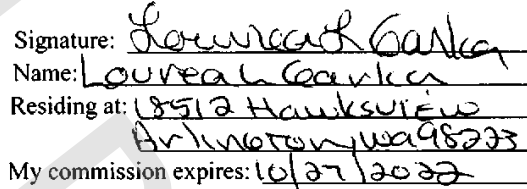 Signature:
Name: Loureah
Residing at: 18512 Hawksview
Arlington, wa 98223
My commission expires: 10/27/2022